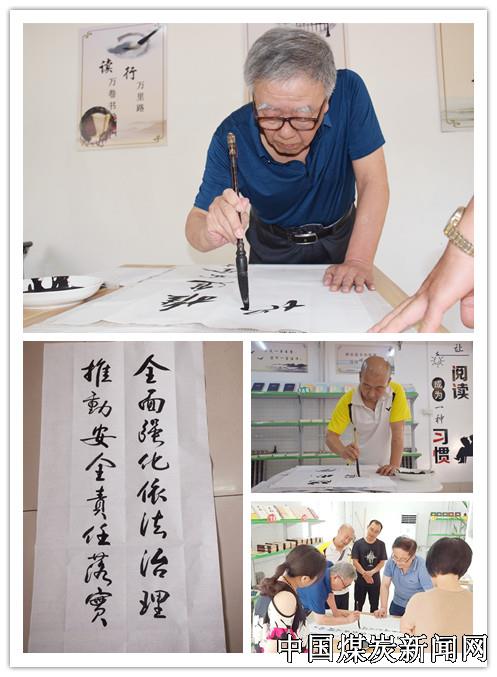 读万卷书
行万里路
全面强化依法治理
推動安全責任落實
让
阅读
成为
一种
习惯
中国煤炭新闻网